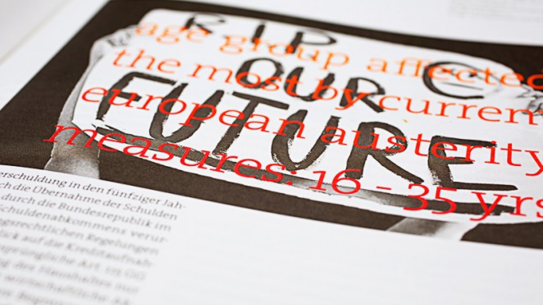 RIP
OUR
FUTURE
age group affected
the most by current
european austerity
measures: 16 - 35 yrs
erschuldung in den fünfziger Jah-
ch die Übernahme der Schulden
durch die Bundesrepublik im
Schuldenabkommens verur-
ngsrechtlichen Regelungen
k auf die Kreditaufnah-
sprüngliche Art. 115 GG